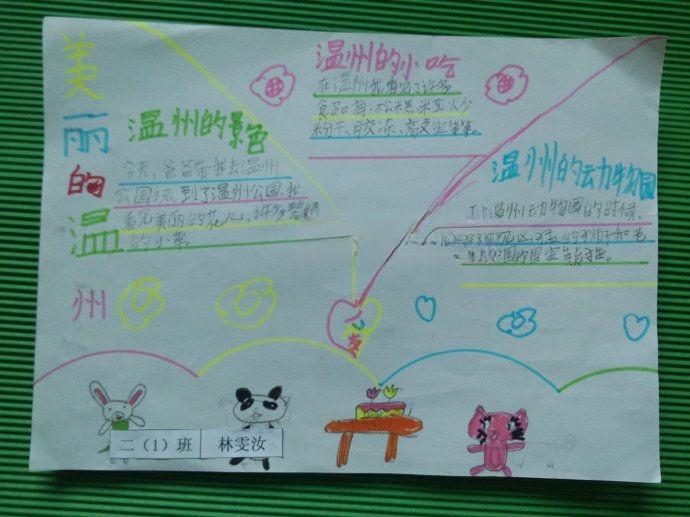 美丽的温州
温州的景色
今天，爸爸带我去温州
公园玩，到了温州公园，我
看见美丽的花儿，许多碧绿
的小草。
温州的小吃
在温州我看见了许多
食品有：松糕、米面、炒
粉干、胶冻、
等等。
温州的动物园
温州动物园的时候，
的狮子和老
国的国宝熊猫。
二（1）班
林雯汝